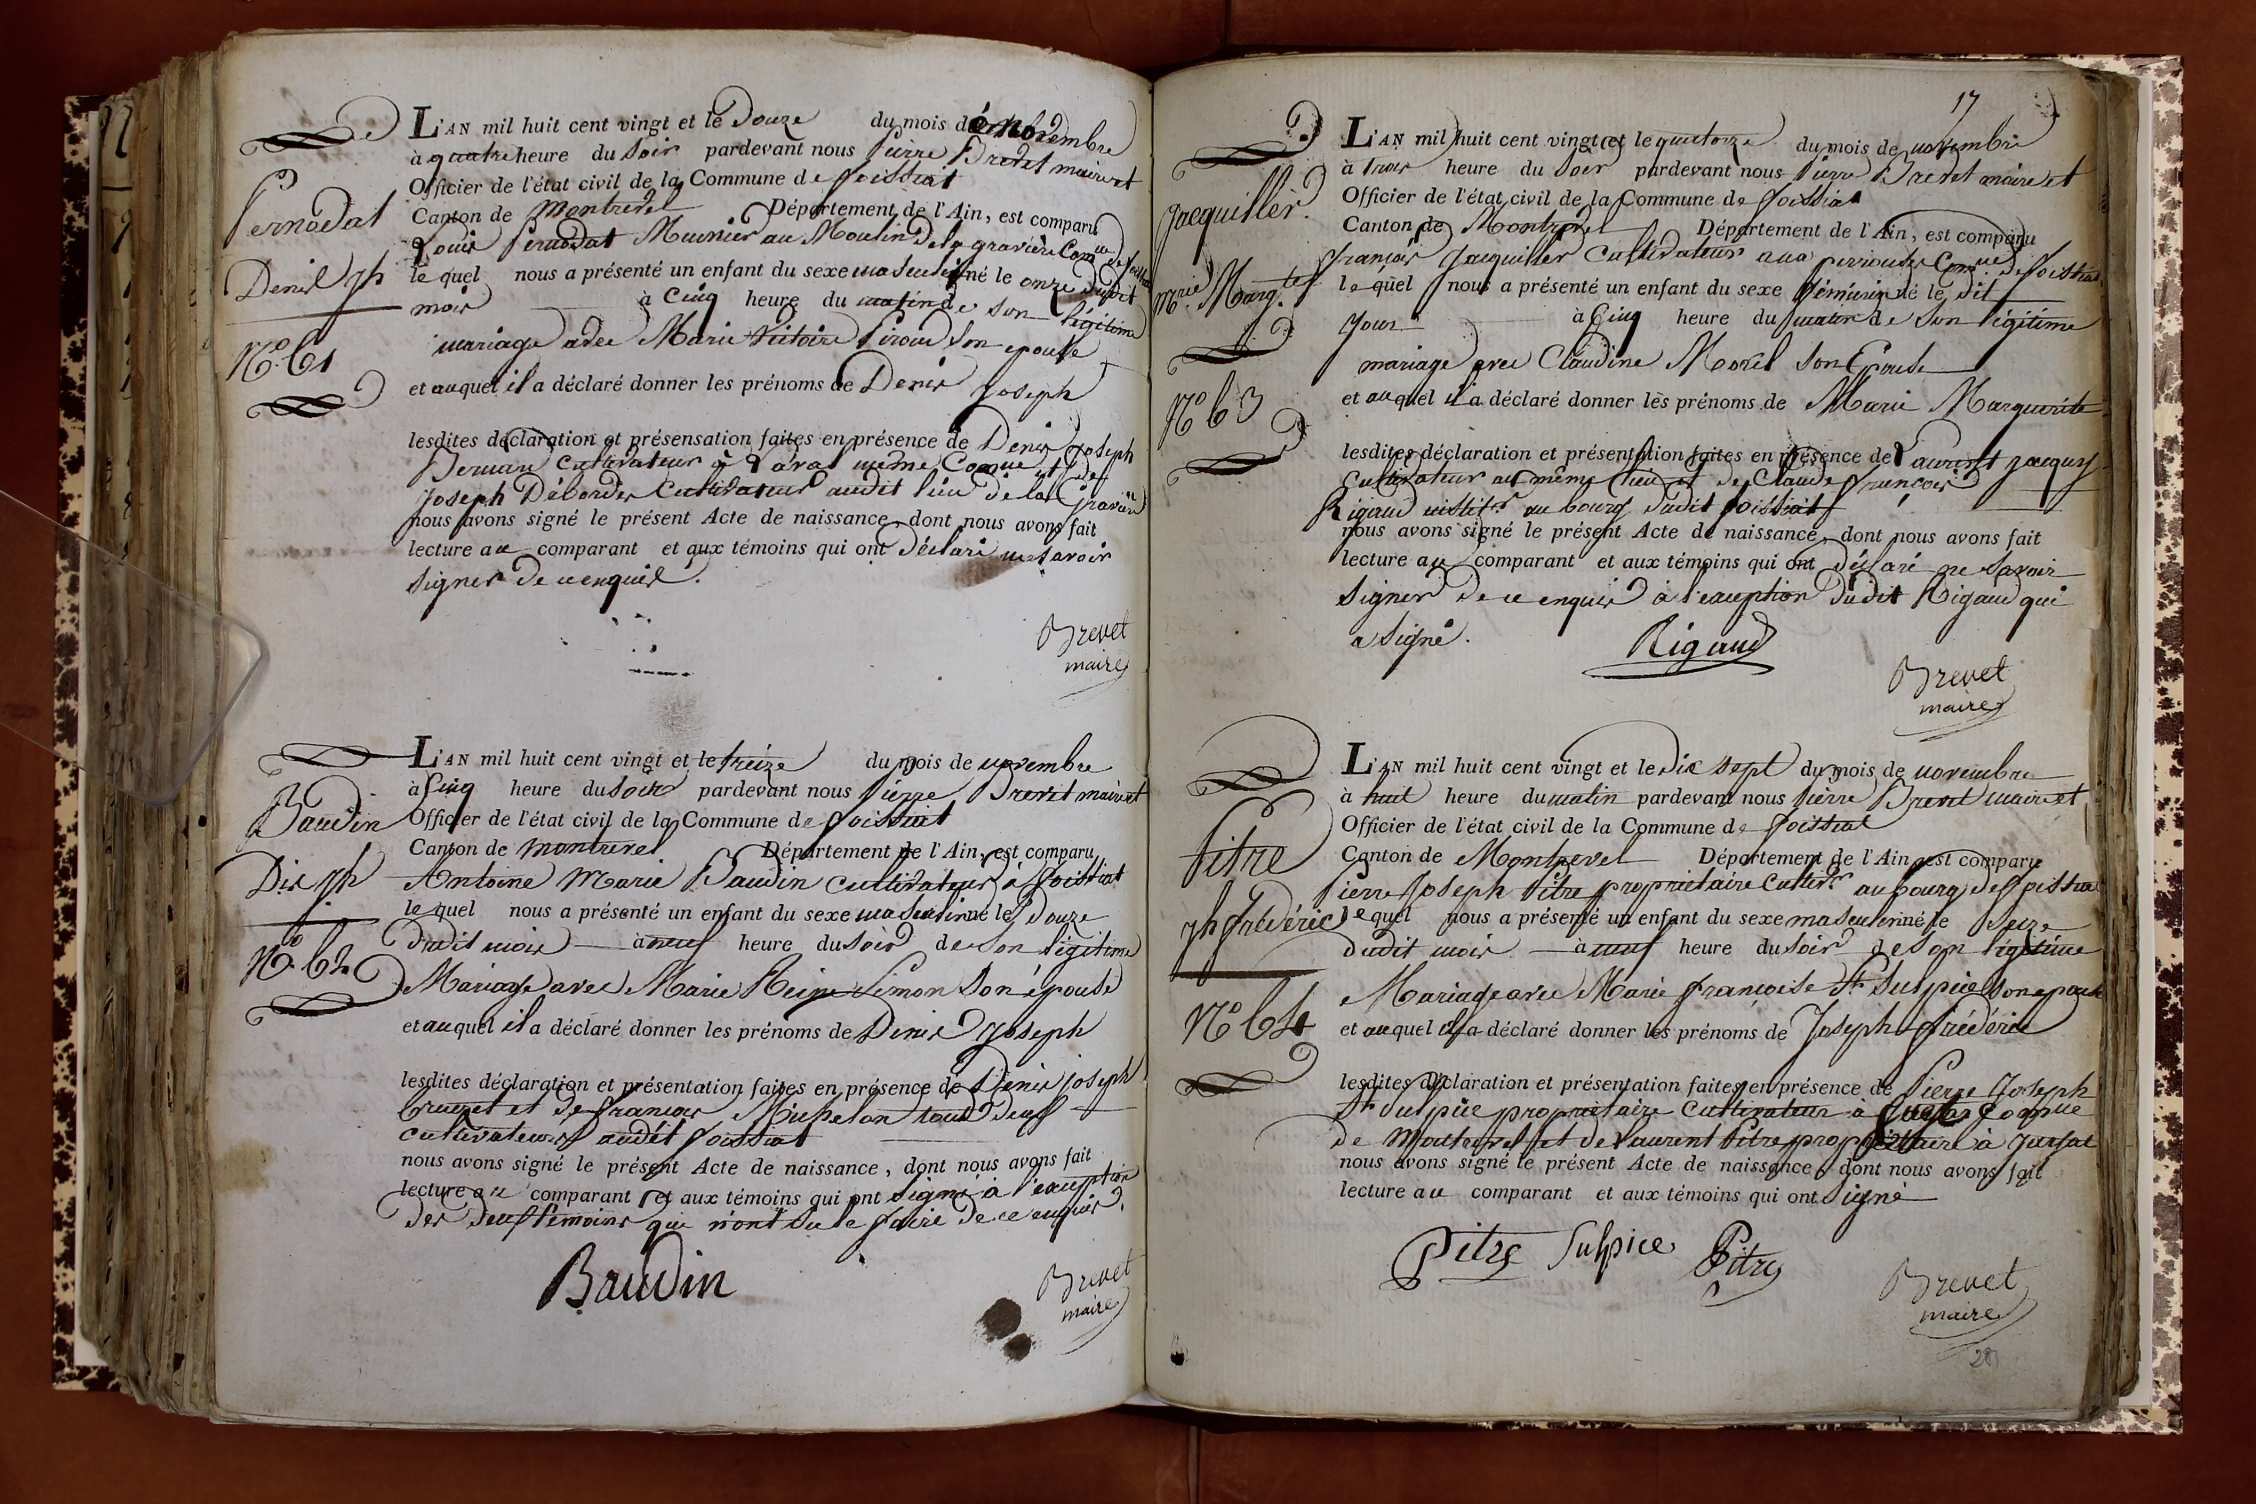 Pernodat
Denis jph
N.º 61
L'AN mil huit cent vingt et le Douze du mois de novembre
à quatre heure du soir pardevant nous Pierre Brevet maire et
Officier de l'état civil de la Commune de foissiat
Canton de Montrevel Département de l'Ain, est comparu
Louis Pernodat Meunier au Moulin Dela gravière Comue de foissiat
le quel nous a présenté un enfant du sexe masculin né le onze Dudit
mois à Cinq heure du matin de son légitime
mariage avec Marie Victoire Piroud son epouse
et auquel il a déclaré donner les prénoms de Denis Joseph
lesdites déclaration et présensation faites en présence de Denis Joseph
cultivateur à même Comue et de
Joseph Débordes Cultivateur audit lieu de la Gravière
nous avons signé le présent Acte de naissance, dont nous avons fait
lecture au comparant et aux témoins qui ont Déclaré ne savoir
signer de ce enquis.
Brevet
maire
Baudin
Dis jph
N.º 62
L'AN mil huit cent vingt et le treize du mois de novembre
à Cinq heure du soir pardevant nous Pierre Brevet maire et
Officier de l'état civil de la Commune de foissiat
Canton de montrevel Département de l'Ain, est comparu
Antoine Marie Baudin cultivateur à foissiat
le quel nous a présenté un enfant du sexe masculin né le Douze
Dudit mois à neuf heure du soir de son légitime
Mariage avec Marie Reine Simon Son épouse
et auquel il a déclaré donner les prénoms de Denis Joseph
lesdites déclaration et présentation faites en présence de Denis joseph
et de francois Michelon tous Deux
cultivateurs audit foissiat
nous avons signé le présent Acte de naissance, dont nous avons fait
lecture au comparant et aux témoins qui ont signé à l'exception
des deux témoins qui n'ont su le faire de ce enquis.
Baudin
Brevet
maire
17
Jacquiller
Mrie Margte
Nº 63
L'AN mil huit cent vingt et le quatorze du mois de novembre
à trois heure du soir pardevant nous Pierre Brevet maire et
Officier de l'état civil de la Commune de foissiat
Canton de Montrevel Département de l'Ain, est comparu
françois Jacquiller Cultivateur aux Comue de foissiat
le quel nous a présenté un enfant du sexe féminin né le dit
jour à Cinq heure du matin de son légitime
mariage avec Claudine Morel son Epouse
et auquel il a déclaré donner les prénoms de Marie Marguerite
lesdites déclaration et présentation faites en présence de Laurent
cultivateur au même lieu et de Claude françois
Rigaud institr au bourg dudit foissiat
nous avons signé le présent Acte de naissance, dont nous avons fait
lecture au comparant et aux témoins qui ont déclaré ne savoir
signer de ce enquis à l'exception dudit Rigaud qui
a signé.
Rigaud
Brevet
maire
Pitre
jph frédéric
Nº 64
L'AN mil huit cent vingt et le Dix sept du mois de novembre
à huit heure du matin pardevant nous Pierre Brevet maire et
Officier de l'état civil de la Commune de foissiat
Canton de Montrevel Département de l'Ain, est comparu
Pierre Joseph Pitre propriétaire Cultivr au bourg de foissiat
le quel nous a présenté un enfant du sexe masculin né le seize
dudit mois à neuf heure du soir de son légitime
Mariage avec Marie françoise St Sulpice son epouse
et auquel il a déclaré donner les prénoms de Joseph frédéric
lesdites déclaration et présentation faites en présence de Pierre Joseph
St Sulpice propriétaire Cultivateur à Comue
de Montrevel et de Laurent Pitre propriétaire à
nous avons signé le présent Acte de naissance, dont nous avons fait
lecture au comparant et aux témoins qui ont signé
Pitre Sulpice Pitre
Brevet
maire